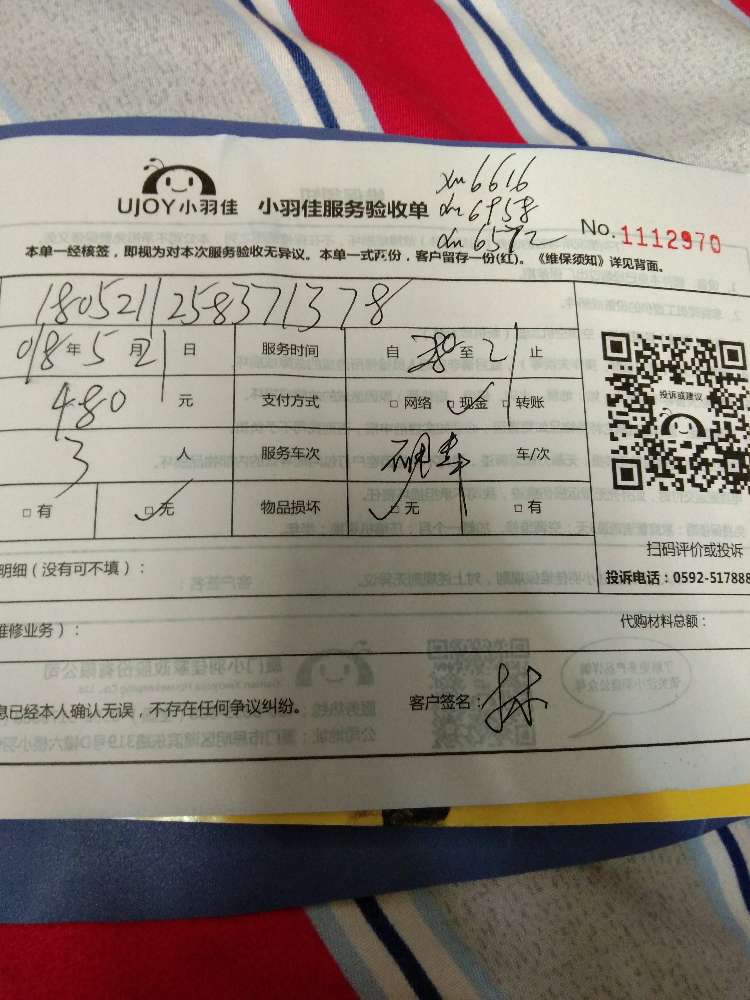 xm6616
UJOY小羽佳 小羽佳服务验收单 xm6958
xm6572
No. 1112970
本单一经核签，即视为对本次服务验收无异议。本单一式两份，客户留存一份(红)。《维保须知》详见背面。
180521125837 1378
018年5月21日 服务时间 自 至21止
480元 支付方式 □网络 □现金 □转账
投诉或建议
3人 服务车次 车/次
□有 □无 物品损坏 □无 □有
扫码评价或投诉
明细（没有可不填）：
投诉电话：0592-517888
维修业务）： 代购材料总额：
息已经本人确认无误，不存在任何争议纠纷。 客户签名：林